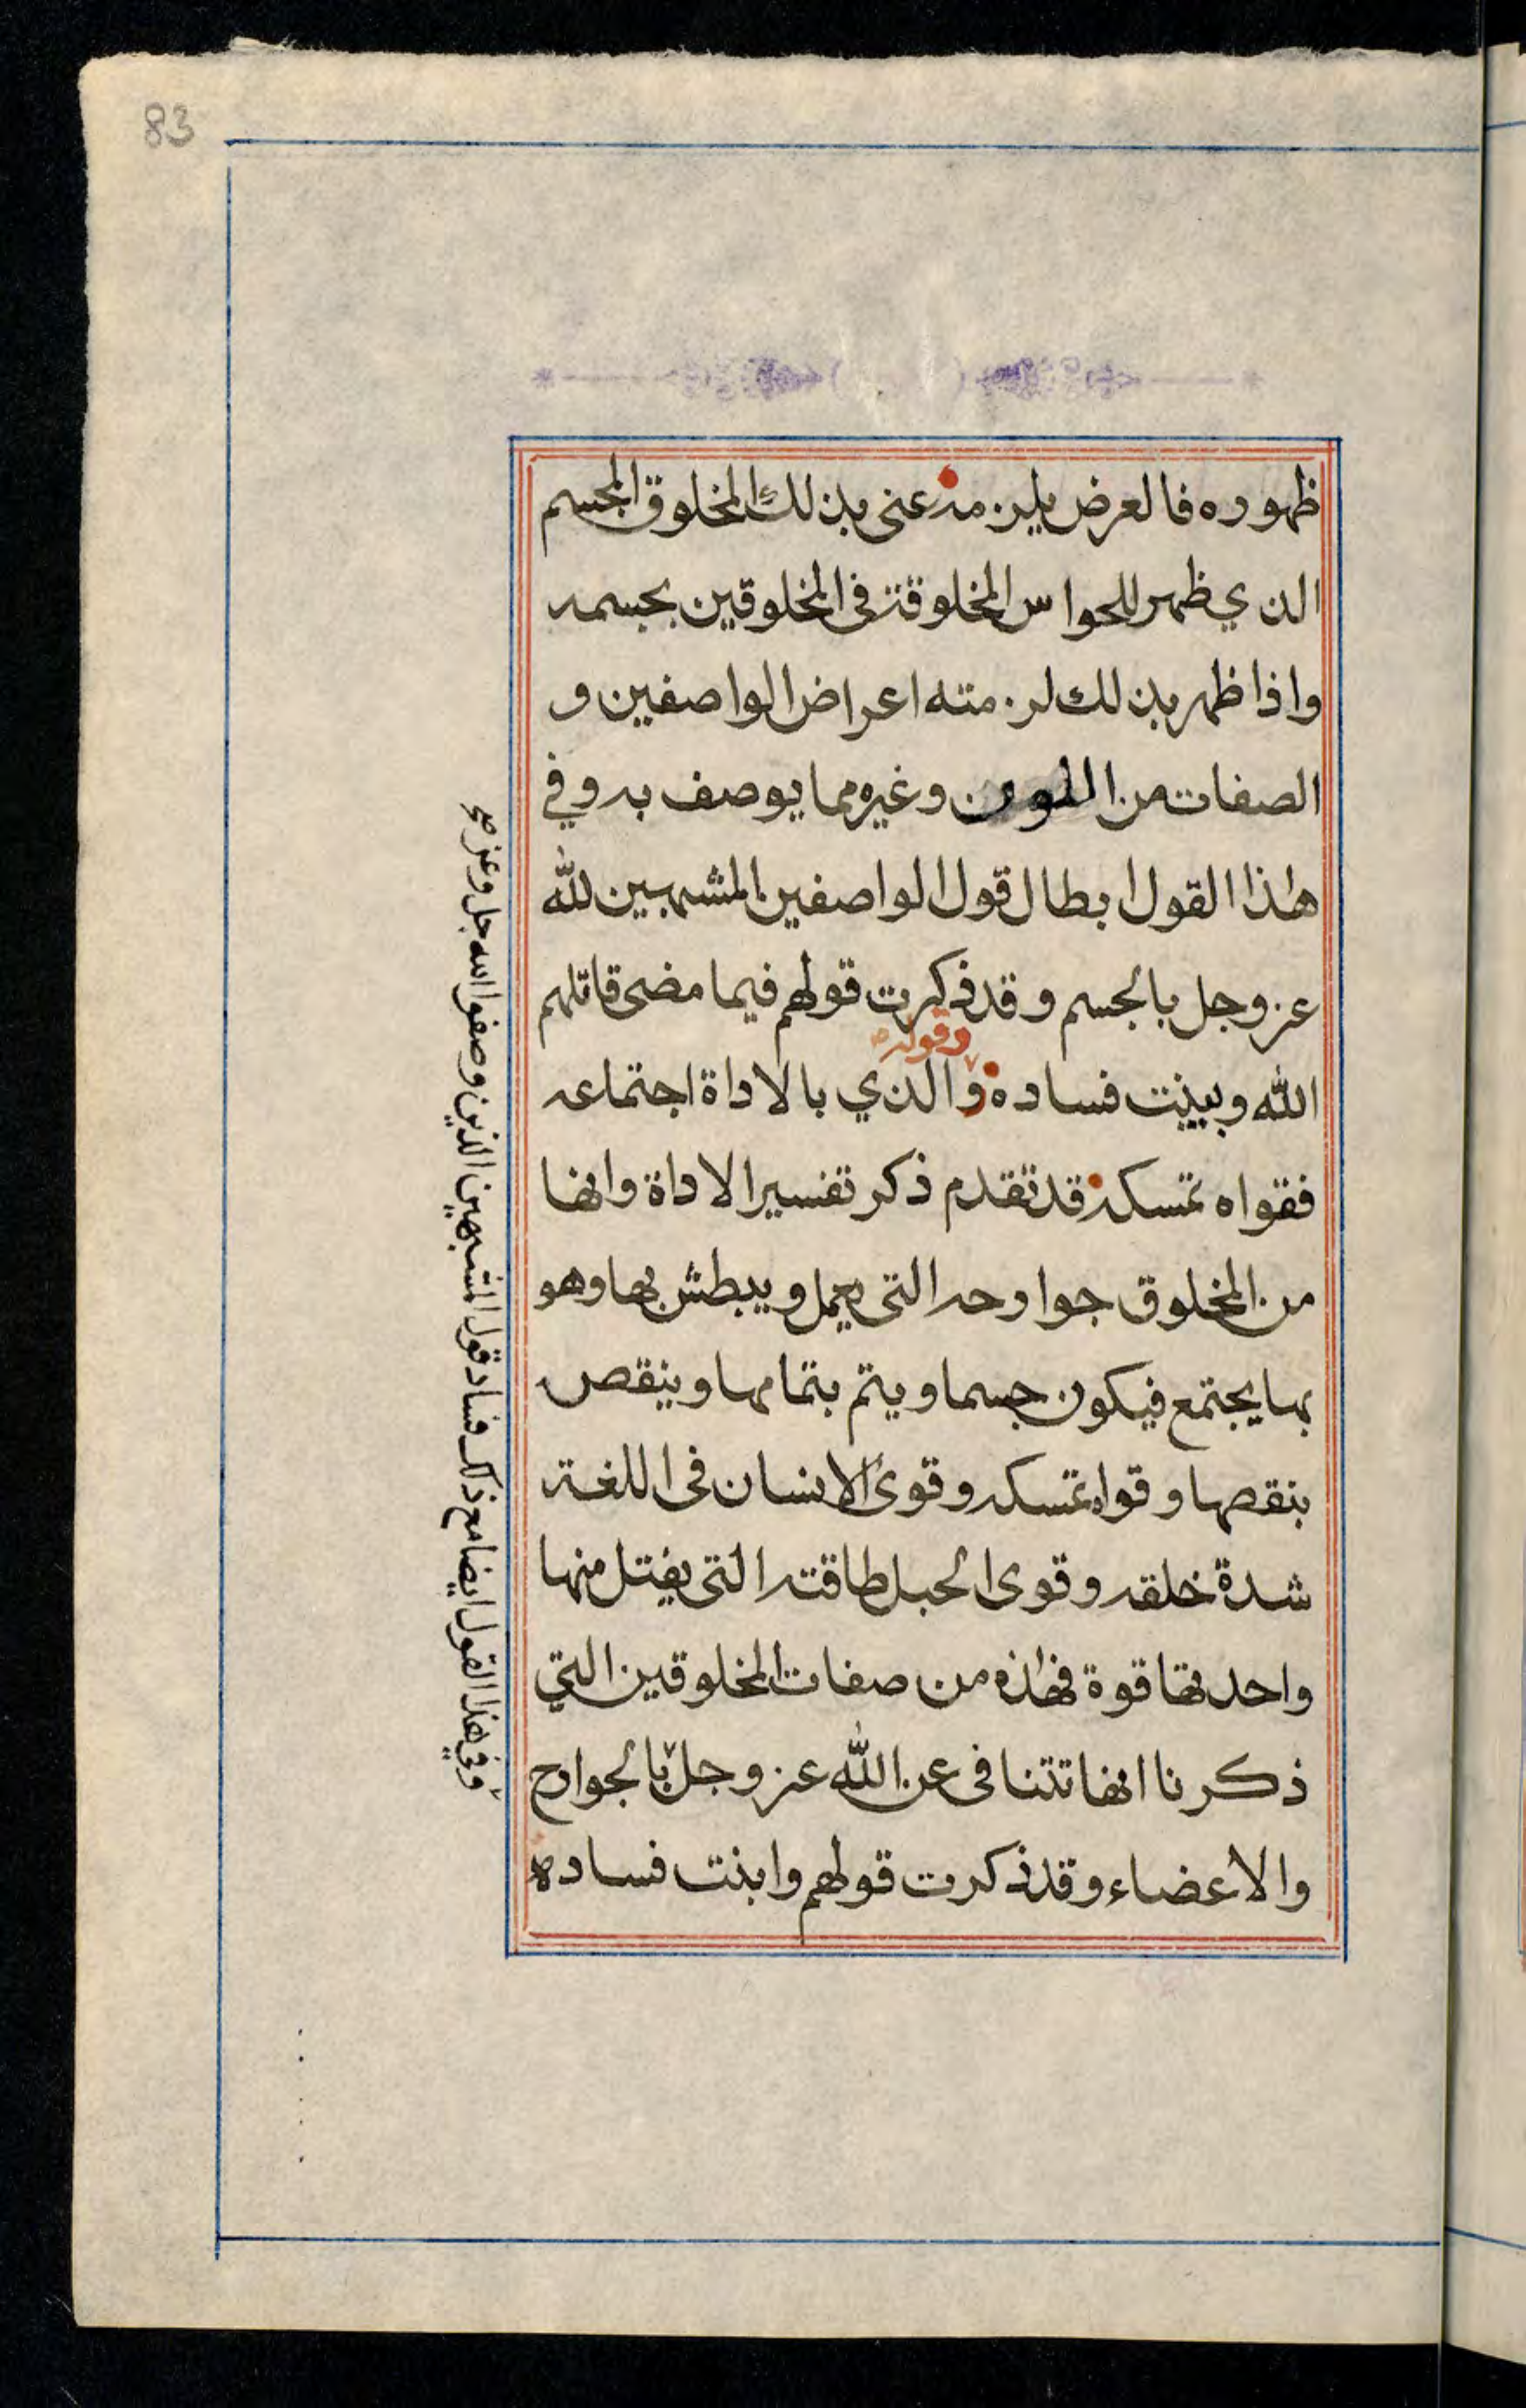 83
ظهوره فالعرض يلزمه عنى بذلك المخلوق المجسم
الذي ظهر للحواس المخلوقة فى المخلوقين بجسمه
واذا ظهر بذلك لزمته اعراض الواصفين و
الصفات من اللون وغيره مما يوصف به وفي
هاذا القول ابطال قول الواصفين المشبهين لله
عز وجل بالجسم وقد ذكرت قولهم فيما مضى قاتلهم
وقوله
الله وبينت فساده والذي بالاداة اجتماعه
فقواه تمسكه قد تقدم ذكر تفسير الاداة وانها
من المخلوق جوارحه التى يعمل ويبطش بها وهو
بها يجتمع فيكون جسما ويتم بتمامها وينقص
بنقصها وقواه تمسكه وقوى الانسان فى اللغة
شدة خلقه وقوى الحبل طاقته التى يفتل منها
واحدتها قوة فهاذه من صفات المخلوقين التي
ذكرنا انها تتنافى عن الله عز وجل بالجوارح
والاعضاء وقد ذكرت قولهم وابنت فساده
وفي هذا القول ايضا مع ذلك فساد قول المشبهين الذين وصفوا الله جل وعز صح